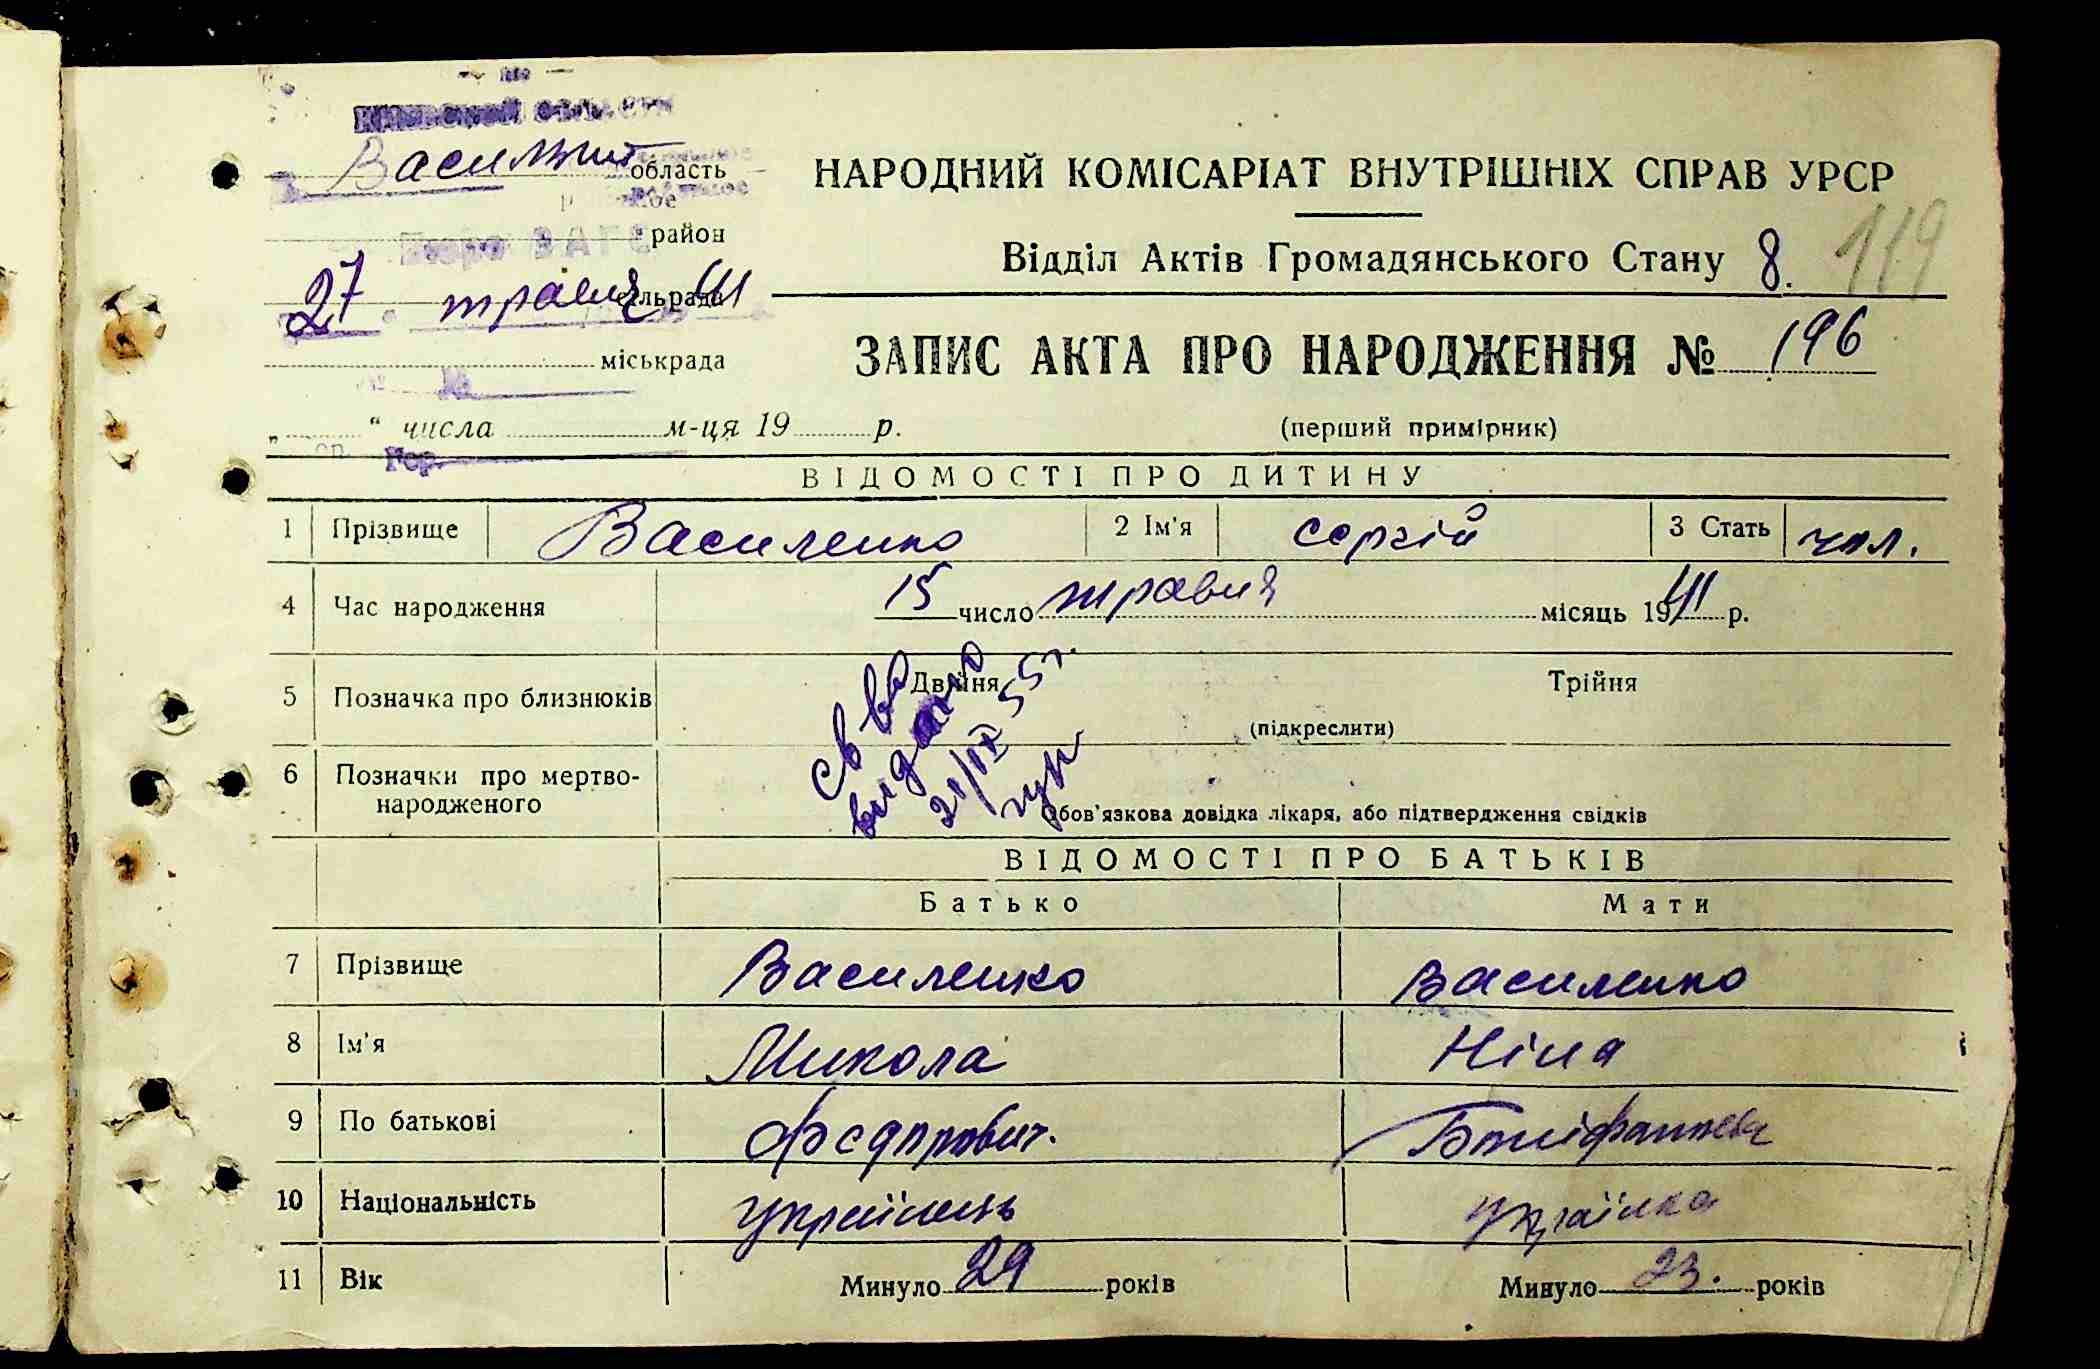 Київської області
область
НАРОДНИЙ КОМІСАРІАТ ВНУТРІШНІХ СПРАВ УРСР
Бюро ЗАГС район
Відділ Актів Громадянського Стану 8. 119
27 травня сільрада 41
ЗАПИС АКТА ПРО НАРОДЖЕННЯ № 196
міськрада
№
„ “ числа м-ця 19 р.
(перший примірник)
гор.
ВІДОМОСТІ ПРО ДИТИНУ
1 Прізвище Василенко 2 Ім'я Сергій 3 Стать чол.
4 Час народження 15 число травня місяць 1941 р.
5 Позначка про близнюків Двійня Трійня
(підкреслити)
св во
видано
21/IX 55 г.
6 Позначки про мертво-
народженого
Обов'язкова довідка лікаря, або підтвердження свідків
ВІДОМОСТІ ПРО БАТЬКІВ
Батько Мати
7 Прізвище Василенко Василенко
8 Ім'я Микола Ніна
9 По батькові Федорович.
10 Національність Українець Українка
11 Вік Минуло 29 років Минуло 23. років